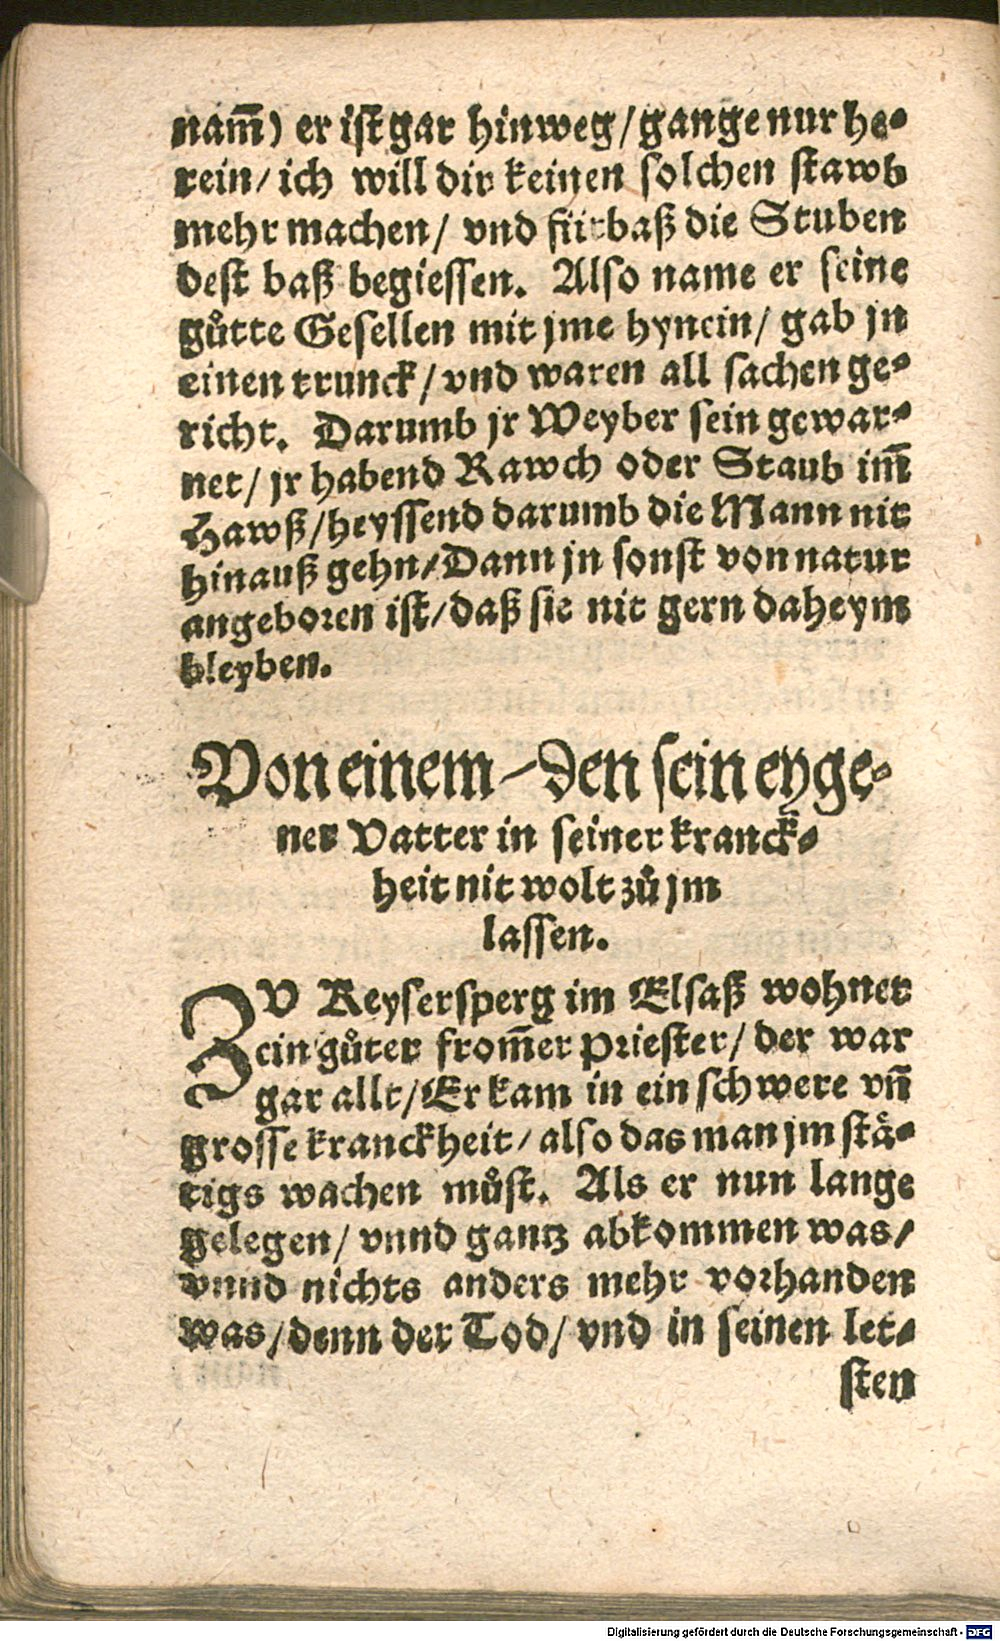 nam̄) er ist gar hinweg/gange nur he-
rein/ ich will dir keinen solchen stawb
mehr machen/ vnd fürbaß die Stuben
dest baß begiessen. Also name er seine
gůtte Gesellen mit jme hynein/ gab jn
einen trunck/ vnd waren all sachen ge-
richt. Darumb jr Weyber sein gewar-
net/ jr habend Rawch oder Staub im̄
Hawß/heyssend darumb die Mann nit
hinauß gehn/Dann jn sonst von natur
angeboren ist/daß sie nit gern daheym
bleyben.
Von einem/den sein eyge-
ner Vatter in seiner kranck-
heit nit wolt zů jm
lassen.
ZV Keysersperg im Elsaß wohnet
ein gůter from̄er priester/ der war
gar allt/Er kam in ein schwere vn̄
grosse kranckheit/ also das man jm stä-
tigs wachen můst. Als er nun lange
gelegen/ vnnd gantz abkommen was/
vnnd nichts anders mehr vorhanden
was/denn der Tod/ vnd in seinen let-
sten
Digitalisierung gefördert durch die Deutsche Forschungsgemeinschaft - DFG